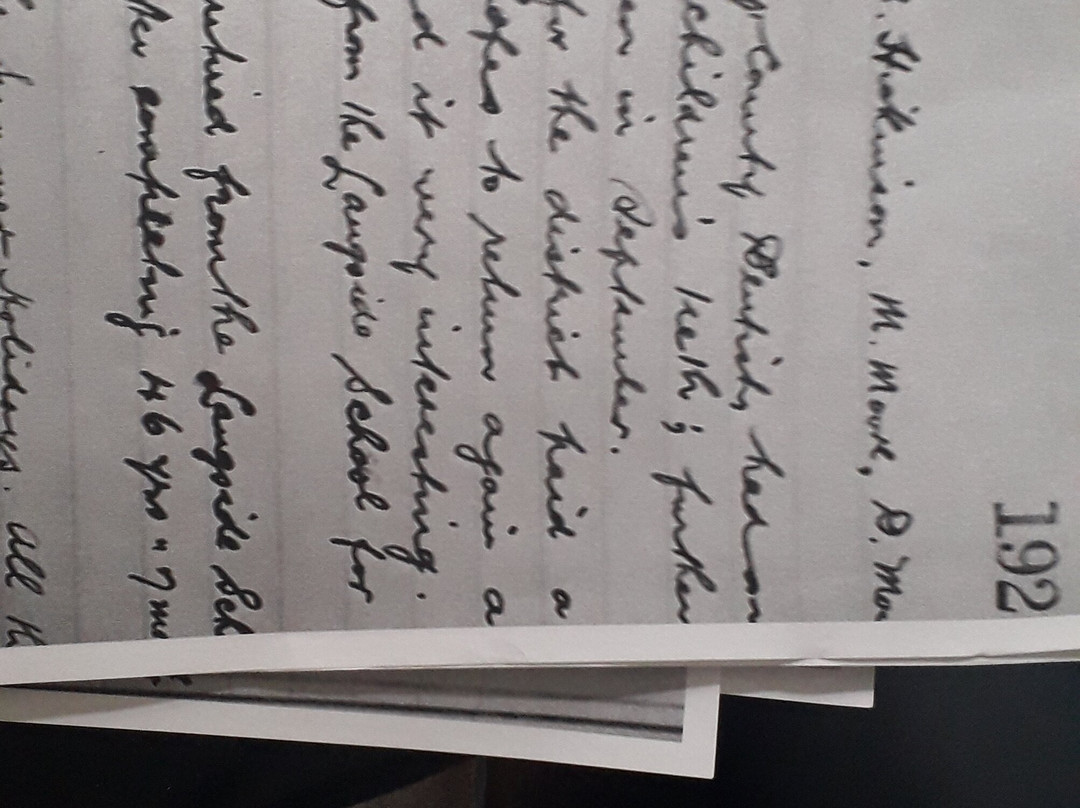 192
. Hickinson, M. Moore, D. Moo
County Dentists, had on
children's teeth; further
en in September.
for the district paid a
opes to return again a
d it very interesting.
from the Langside School for
from the Langside Sch
completing 46 yrs " 7 mo
holidays. All th